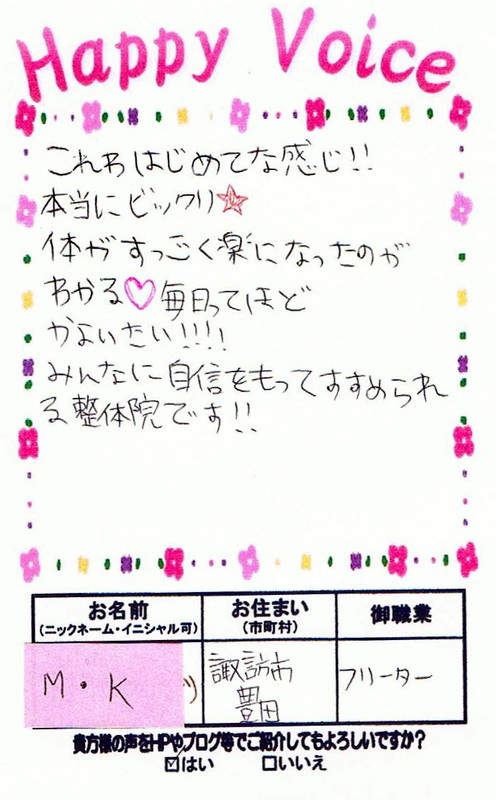 Happy Voice
これわはじめてな感じ!!
本当にビックリ☆
体がすっごく楽になったのが
わかる♡毎日ってほど
かよいたい!!!!
みんなに自信をもってすすめられ
る整体院です!!
お名前 お住まい 御職業
(ニックネーム・イニシャル可) (市町村)
M・K 諏訪市 フリーター
豊田
貴方様の声をHPやブログ等でご紹介してもよろしいですか?
☑はい □いいえ